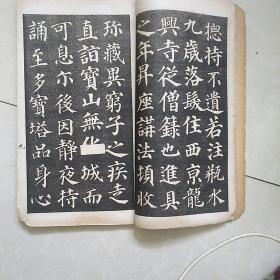 揔持不遺若注瓶水
九歲落髮住西京龍
興寺從僧籙也進具
之年昇座講法頓收
珎藏異窮子之疾走
直詣寶山無化城而
可息尒後因靜夜持
誦至多寶塔品身心
九